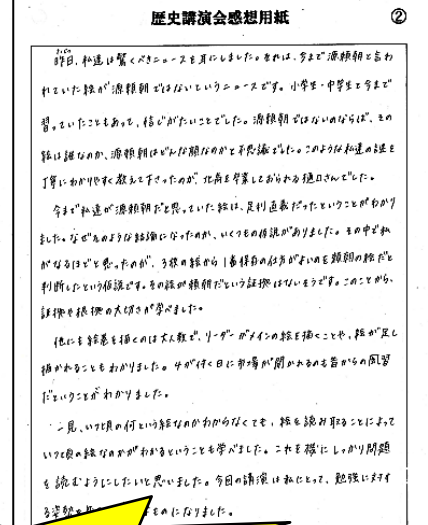 歴史講演会感想用紙
②
昨日、私達は驚くべきニュースを耳にしました。それは、今まで源頼朝と言わ
れていた絵が源頼朝ではないというニュースです。小学生・中学生と今まで
習っていたこともあって、信じがたいことでした。源頼朝ではないのならば、その
絵は誰なのか、源頼朝はどんな顔なのかと不思議でした。このような私達の謎を
丁寧にわかりやすく教えて下さったのが、北高を卒業しておられる樋口さんでした。
今まで私達が源頼朝だと思っていた絵は、足利直義だったということがわかり
ました。なぜそのような結論になったのか、いくつもの仮説がありました。その中で私
がなるほどと思ったのが、3枚の絵から1番保存の仕方がよいのを頼朝の絵だと
判断したという仮説です。その絵が頼朝だという証拠はないそうです。このことから、
証拠や根拠の大切さが学べました。
他にも絵巻を描くのは大人数で、リーダーがメインの絵を描くことや、絵が足し
描かれることもわかりました。4が付く日に市場が開かれるのも昔からの風習
だということがわかりました。
一見、いつ頃の何という絵なのかわからなくても、絵を読み取ることによって
いつ頃の絵なのかがわかるということも学べました。これを機にしっかり問題
を読むようにしたいと思いました。今回の講演は私にとって、勉強に対す
る姿勢を ものになりました。